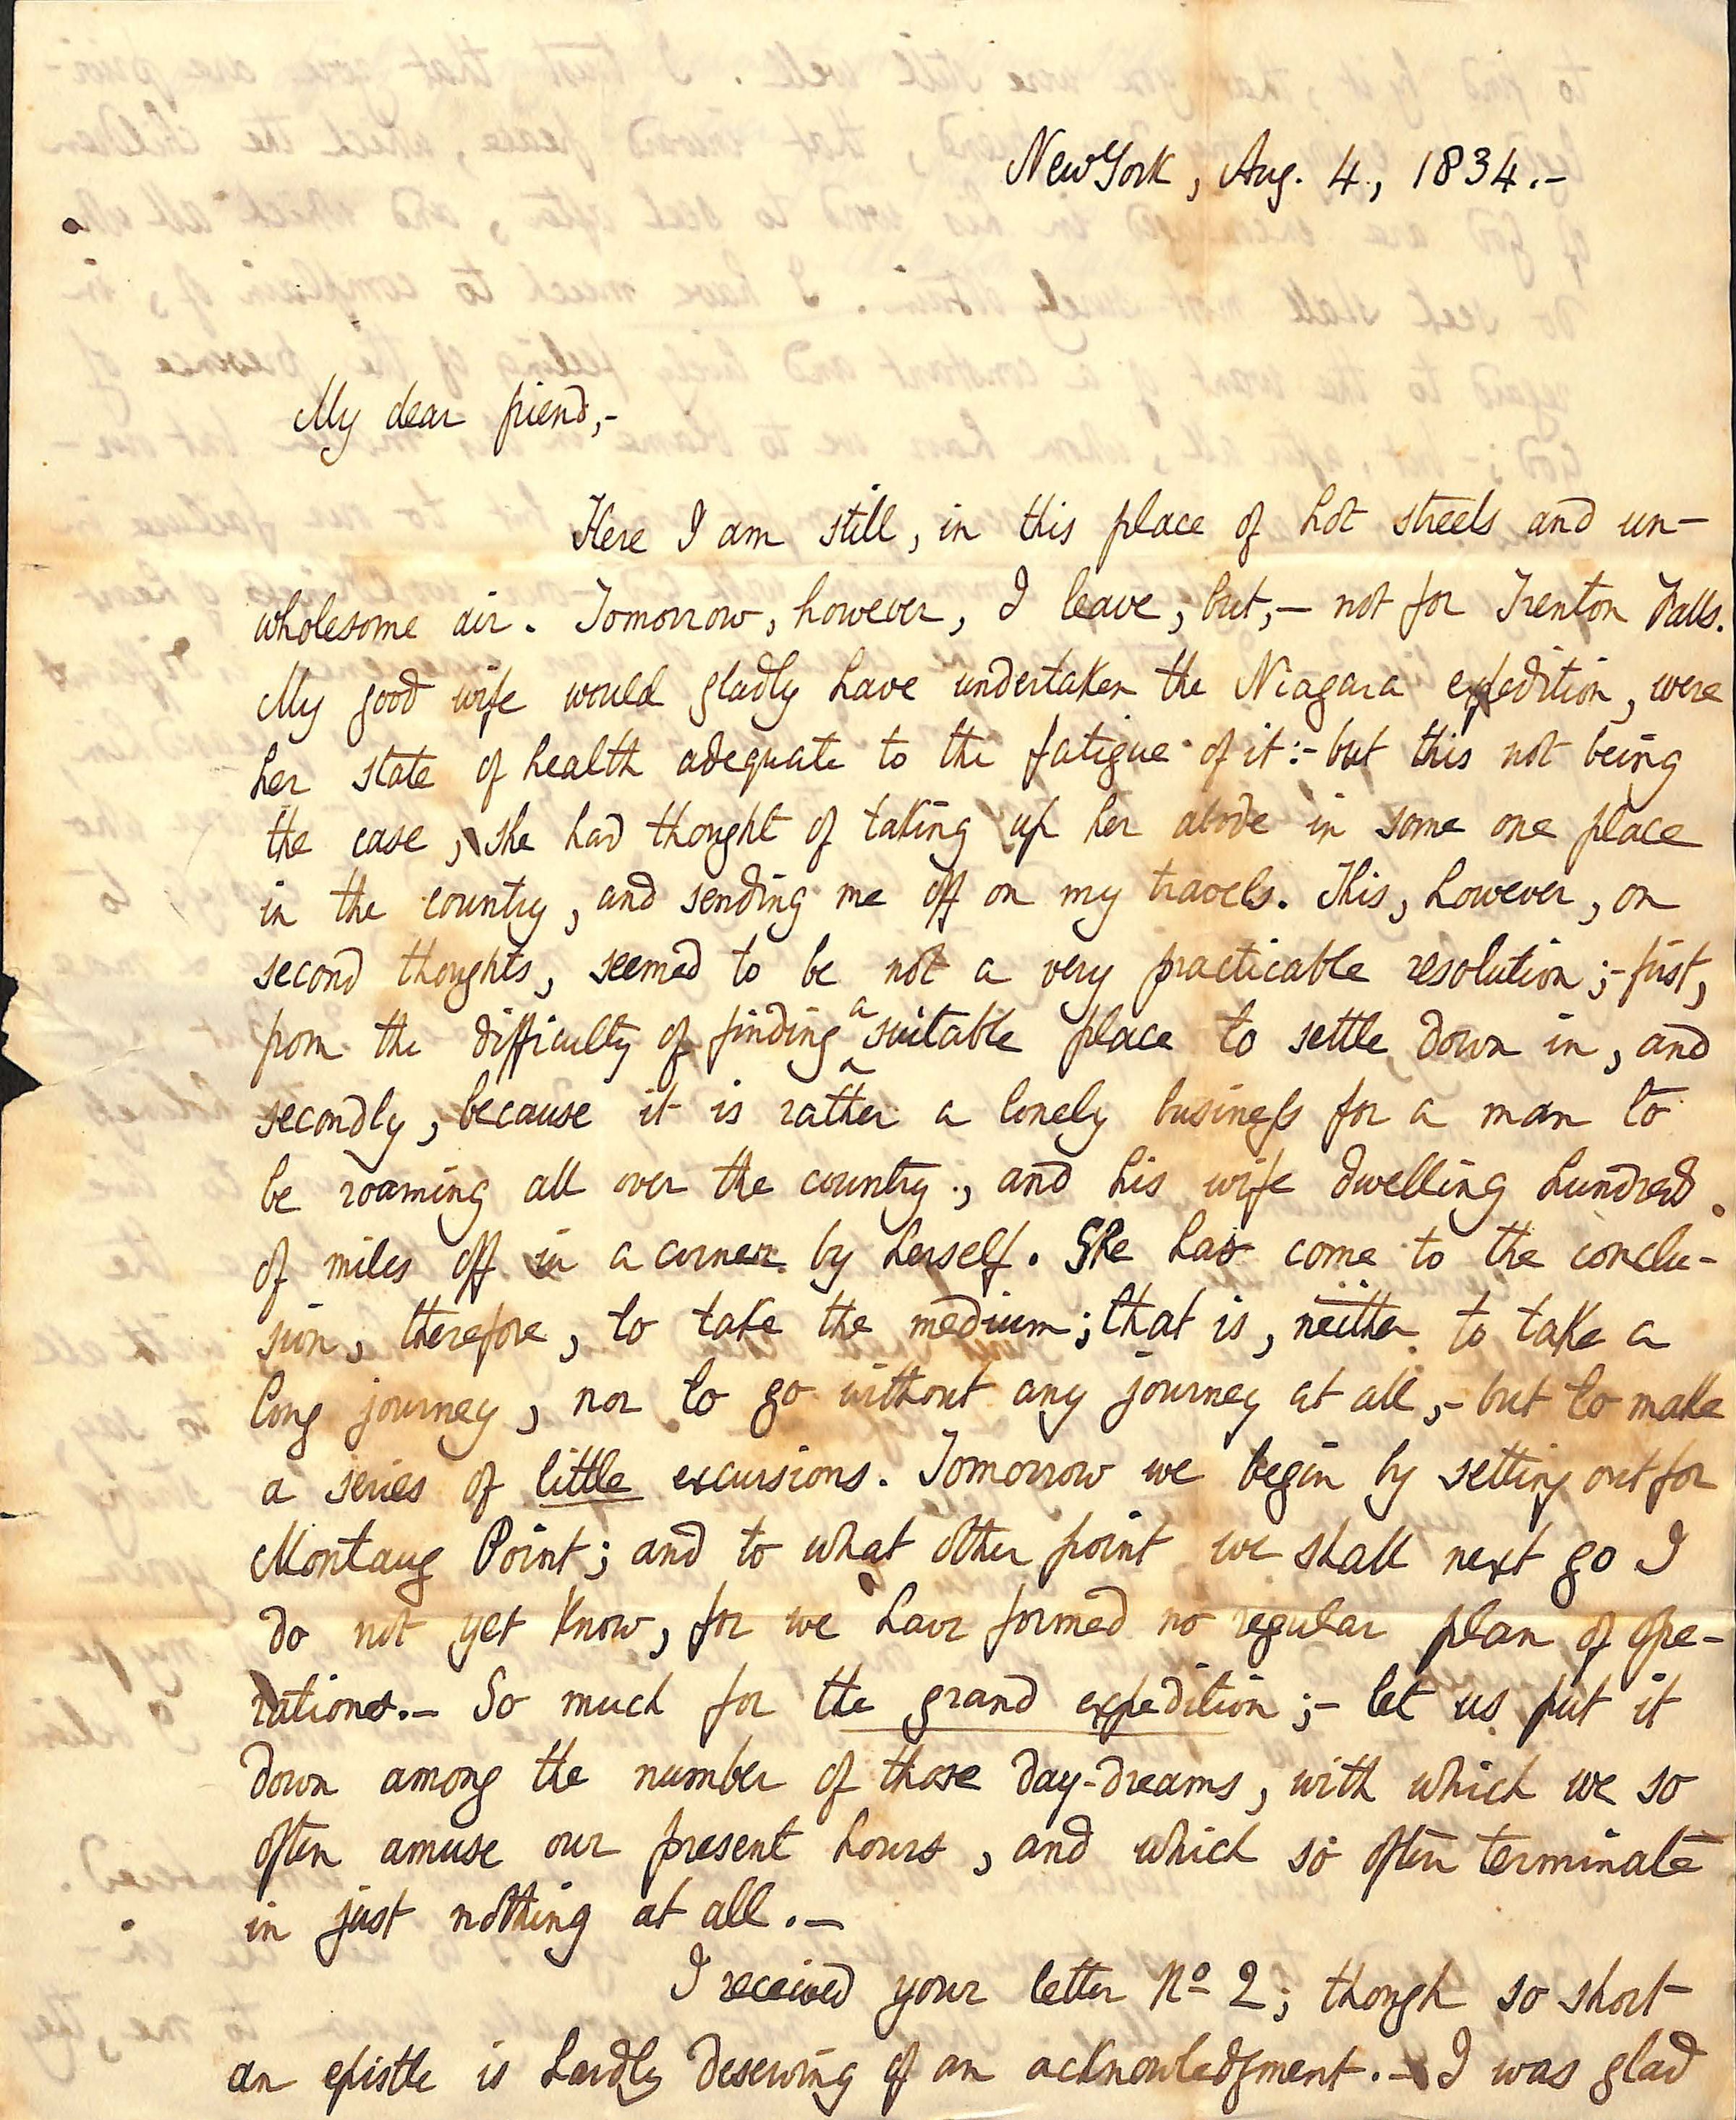 New York, Aug. 4, 1834.-
My dear friend,-
Here I am still, in this place of hot streets and un-
wholesome air. Tomorrow, however, I leave, but,- not for Trenton Falls.
My good wife would gladly have undertaken the Niagara expedition, were
her state of health adequate to the fatigue of it:- but this not being
the case, she had thought of taking up her abode in some one place
in the country, and sending me off on my travels. This, however, on
second thoughts, seemed to be not a very practicable resolution;- first,
from the difficulty of finding a suitable place to settle down in, and
secondly, because it is rather a lonely business for a man to
be roaming all over the country, and his wife dwelling hundreds
of miles off in a corner by herself. She has come to the conclu-
sion, therefore, to take the medium; that is, neither to take a
long journey, nor to go without any journey at all,- but to make
a series of little excursions. Tomorrow we begin by setting out for
Montaug Point; and to what other point we shall next go I
do not yet know, for we have formed no regular plan of ope-
rations.- So much for the grand expedition;- let us put it
down among the number of those day-dreams, with which we so
often amuse our present hours, and which so often terminate
in just nothing at all.-
I received your letter No 2; though so short
an epistle is hardly deserving of an acknowledgment.- I was glad